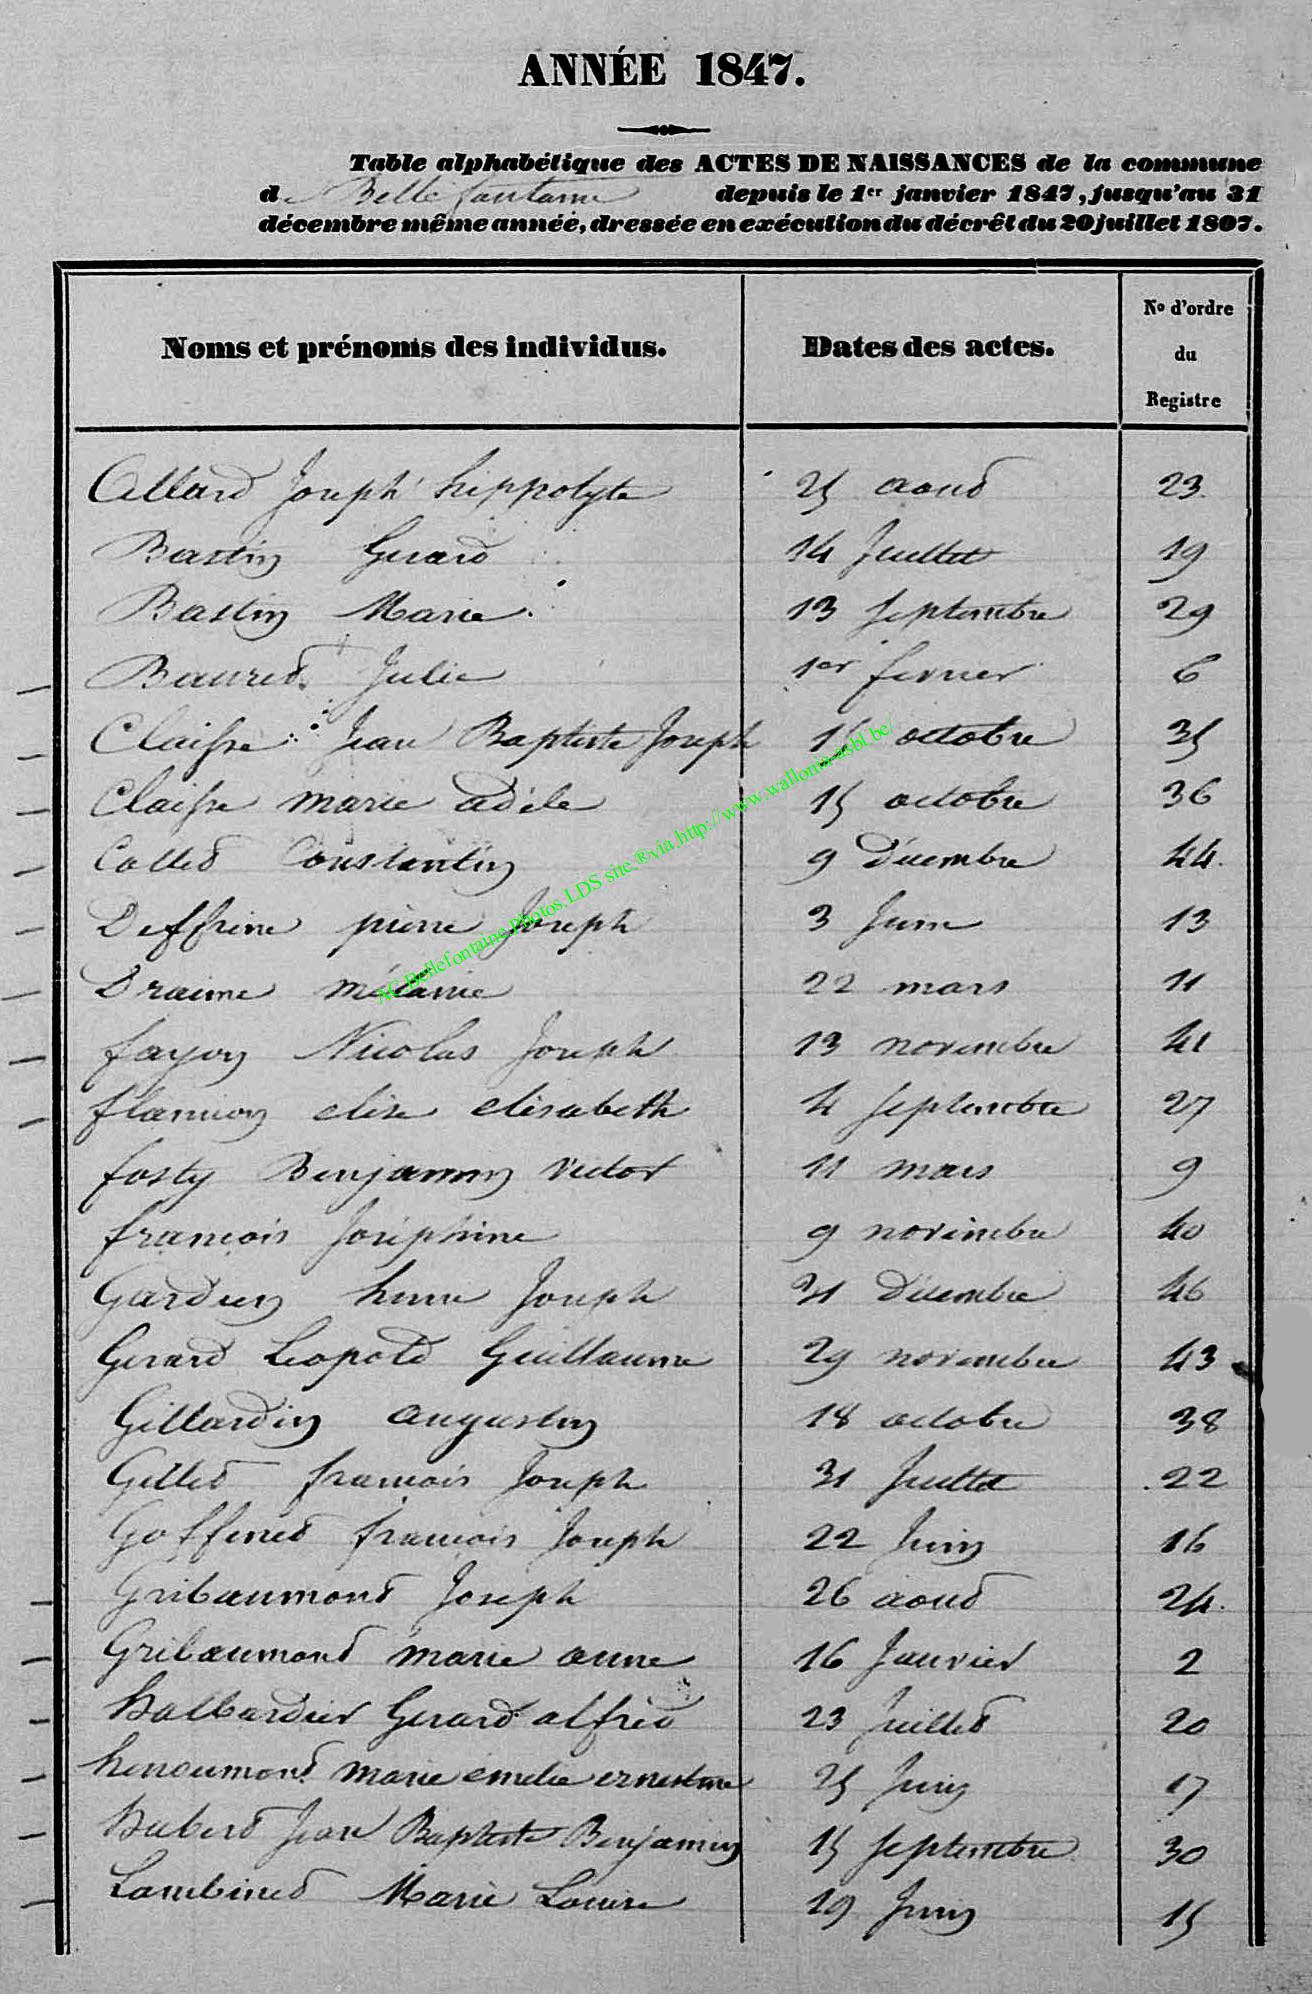 ANNÉE 1847.
Table alphabétique des ACTES DE NAISSANCES de la commune
de Bellefontaine depuis le 1er janvier 1847, jusqu'au 31
décembre même année, dressée en exécution du décrêt du 20 juillet 1807.
Noms et prénoms des individus. Dates des actes. No d'ordre du Registre
Allard Joseph hippolyte 25 aoud 23
Bastin Gerard 14 Juillet 19
Bastin Marie 13 Septembre 29
Baured Julie 1er fevrier 6
Claisse Jean Baptiste Joseph 15 octobre 35
Claisse marie adèle 15 octobre 36
Colled Constantin 9 Décembre 44
Deffrine pierre Joseph 3 Juin 13
Draime mélanie 22 mars 11
fayon Nicolas Joseph 13 novembre 41
flamion elise elisabeth 4 Septembre 27
fosty Benjamin victor 11 mars 9
francois Joséphine 9 novembre 40
Gardien henri Joseph 31 Décembre 46
Gerard Leopold Guillaume 29 novembre 43
Gillardin augustin 18 octobre 38
Gilled francois Joseph 31 Juillet 22
Goffined francois Joseph 22 Juin 16
Gribaumond Joseph 26 aoud 24
Gribaumond marie anne 16 Janvier 2
halbardier Gerard alfred 23 Juilled 20
henoumond marie emelie ernestine 25 Juin 17
hubert Jean Baptiste Benjamin 15 Septembre 30
Lambined Marie Louise 19 Juin 15
AC Bellefontaine Photos LDS site ® via http://www.wallonia-asbl.be/